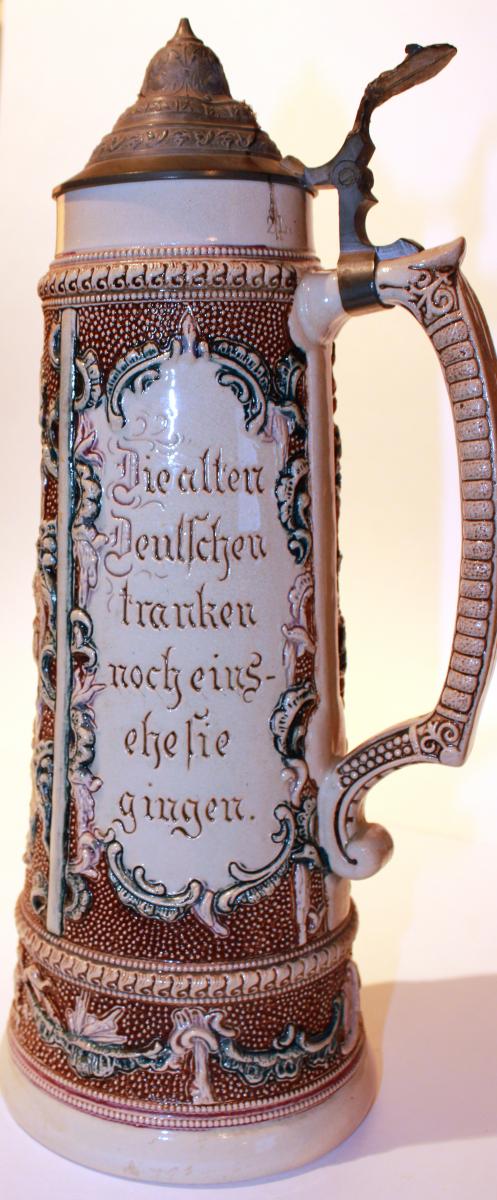 Die alten
Deutschen
tranken
noch eins-
ehe sie
gingen.